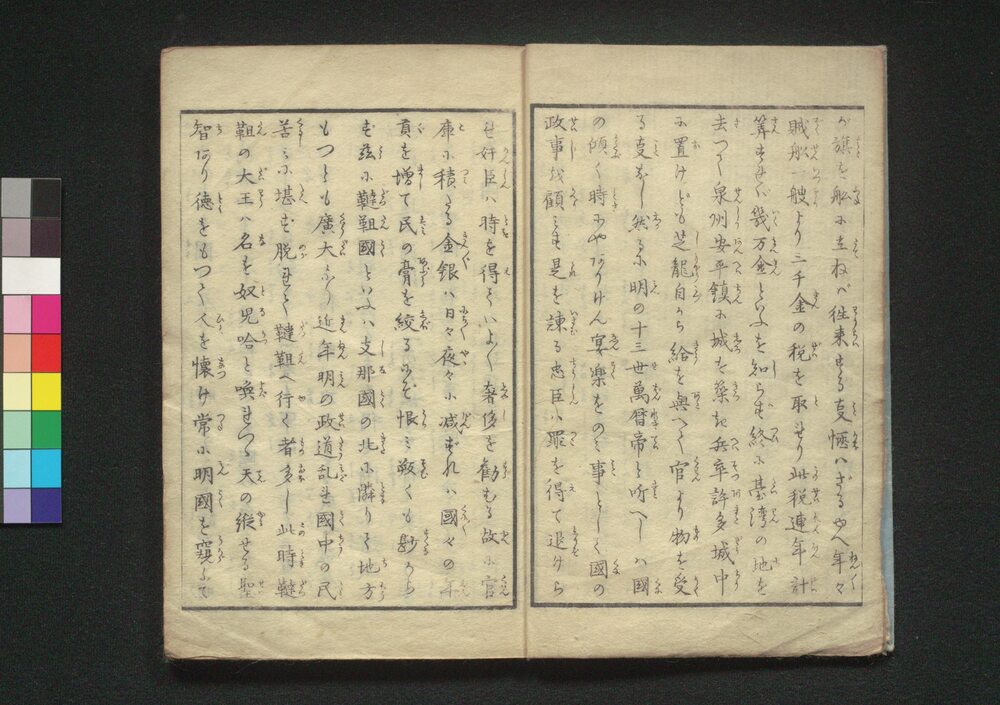 が旗を船に立ねバ往来する事愜ハざるゆへ年々
賊船一艘より三千金の税を取せり此税連年計
算すれバ幾万金といふを知らず終に臺湾の地を
去つて泉州安平鎮に城を築き兵卒許多城中
に置けども芝龍自から給を與へて官より物を受
る事なし然るに明の十三世萬暦帝と听へしハ國
の傾く時にやありけん宴楽をのミ事として國の
政事を顧ミず是を諌る忠臣ハ罪を得て退けら
れ奸臣ハ時を得ていよ〱奢侈を勧むる故に官
庫に積たる金銀ハ日々夜々に减ずれハ國々の年
貢を増て民の膏を絞るゆゑ恨ミ歎くも尠から
ず茲に韃靼國といふハ支那國の北に隣りて地方
もつとも廣大なり近年明の政道乱れ國中の民
苦ミに堪ず脱れて韃靼へ行く者多し此時韃
靼の大王ハ名を奴児哈と喚れつゝ天の縦せる聖
智あり徳をもつて人を懐け常に明國を窺ふて